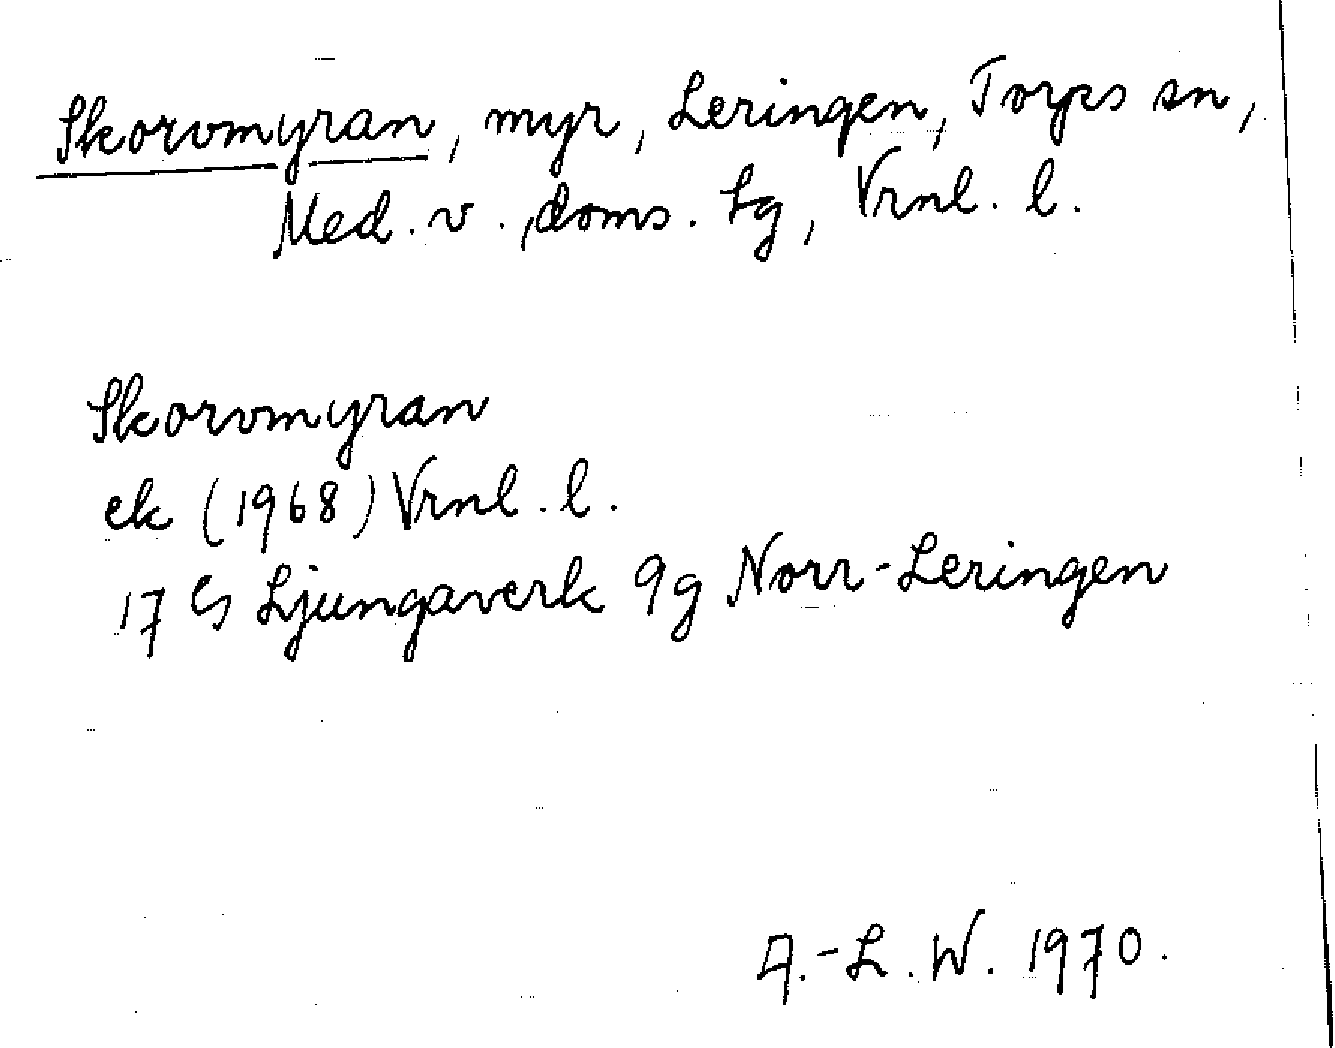 Skorvmyran, myr, Leringen, Torps sn,
Med. v., doms. tg, Vrnl. l.
Skorvmyran
ek (1968) Vrnl. l.
17 G Ljungaverk 9g Norr-Leringen
A.-L. W. 1970.